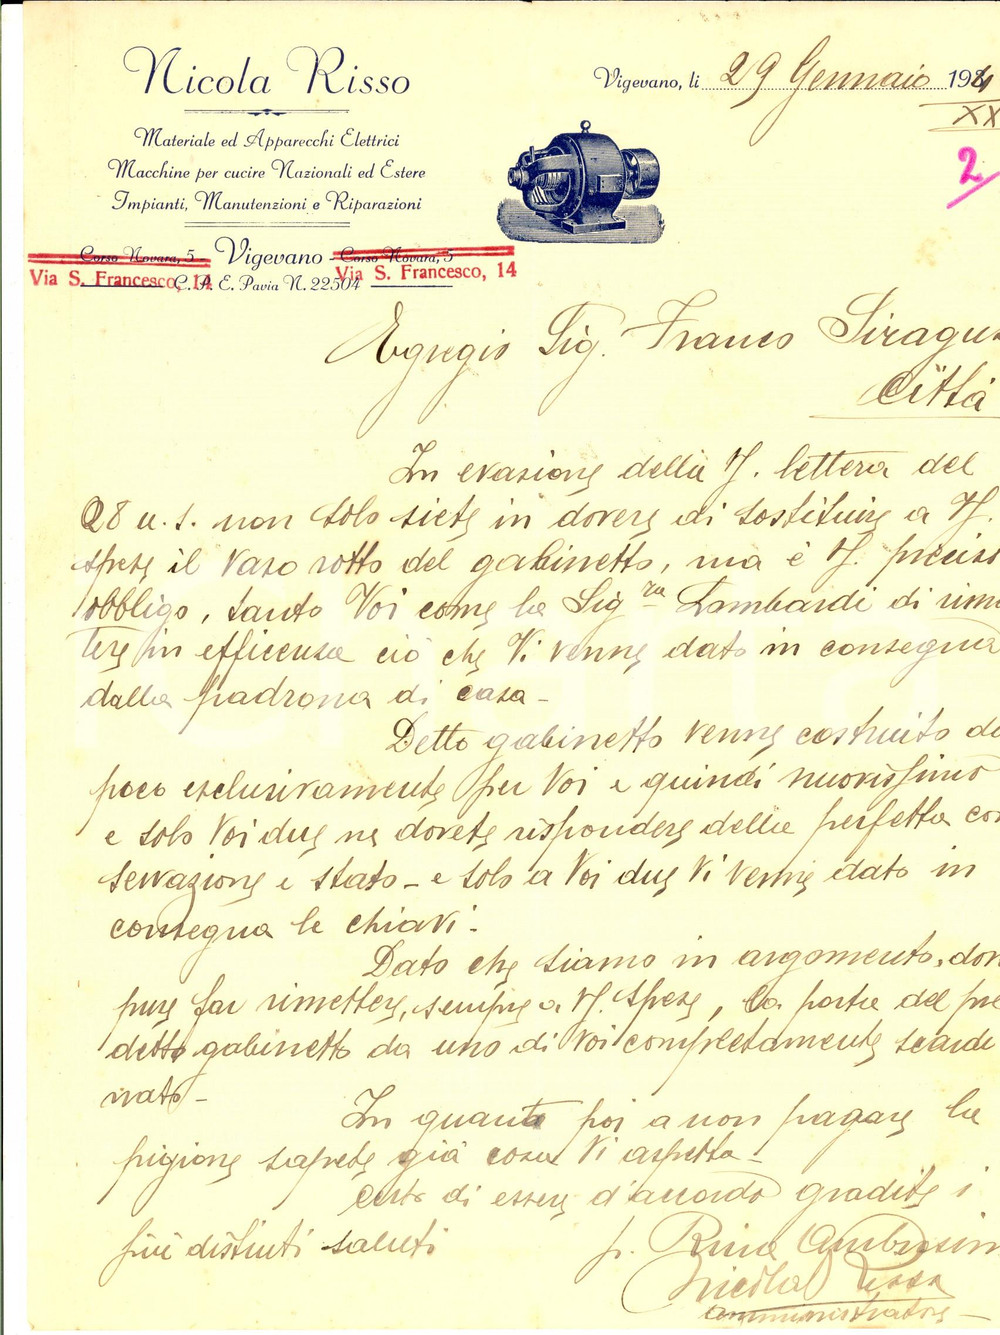 Nicola Risso
Materiale ed Apparecchi Elettrici
Macchine per cucire Nazionali ed Estere
Impianti, Manutenzioni e Riparazioni
Corso Novara, 5 - Vigevano - Corso Novara, 5
Via S. Francesco, 14 C. P. E. Pavia N. 22504 Via S. Francesco, 14
Vigevano, li 29 Gennaio 194
XX
2
Egregio Sig. Franco Siragus
Città
In evasione della V. lettera del
28 u. s. non solo siete in dovere di sostituire a V.
spese il vaso rotto del gabinetto, ma è V. preciso
obbligo, tanto Voi come la Sig.ra Lombardi di rimet
tere in efficenza ciò che Vi venne dato in consegna
dalla padrona di casa -
Detto gabinetto venne costruito da
poco esclusivamente per Voi e quindi nuovissimo
e solo Voi due ne dovete rispondere della perfetta con
servazione e stato - e solo a Voi due Vi venne dato in
consegna le chiavi -
Dato che siamo in argomento, dov
pure far rimettere, sempre a V. spese, la porta del pre
detto gabinetto da uno di Voi completamente scardi
nato -
In quanto poi a non pagare la
pigione sapete già cosa Vi aspetta -
Certo di essere d'accordo gradite i
più distinti saluti
p. Rina Ambrosin
Nicola Risso
amministratore -